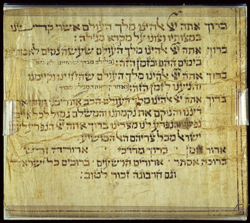 ברוך אתה יי אלהינו מלך העולם אשר
במצותיו וצונו על מקרא מגילה:
ברוך אתה יי אלהינו מלך העולם שעשה נסים
בימים ההם ובזמן הזה:
ברוך אתה יי אלהינו מלך העולם שהחיינו וקיימנו
והגיענו לזמן הזה:
ברוך אתה יי אלהינו מלך העולם הרב את
דיננו והנוקם את נקמתנו והמשלם גמול לכל אויבי
נפשנו והנפרע לנו מצרינו ברוך אתה יי הנפרע
ישראל מכל צריהם האל המושיע:
ארור ברוך מרדכי ארורה
ברוכה אסתר ארורים הרשעים ברוכים כל ישראל
וגם חרבונה זכור לטוב: